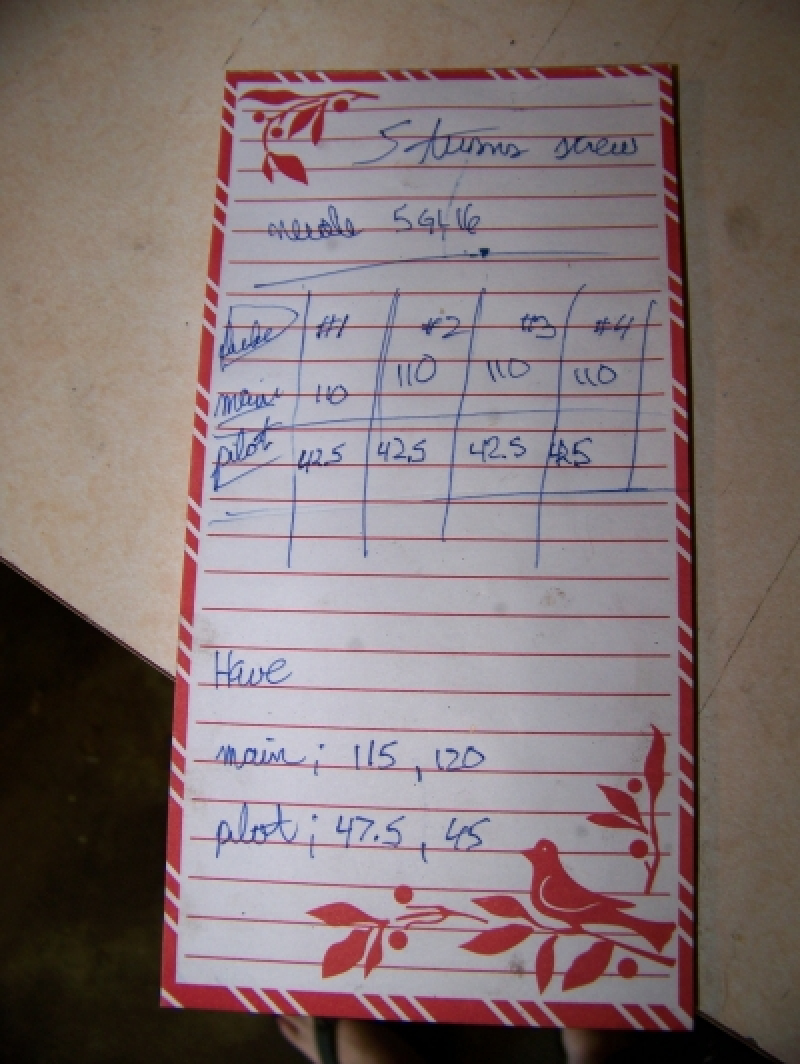 5 turns screw
needle 5GH16
#1 #2 #3 #4
main 110 110 110 110
pilot 42.5 42.5 42.5 42.5
Have
main; 115, 120
pilot; 47.5, 45